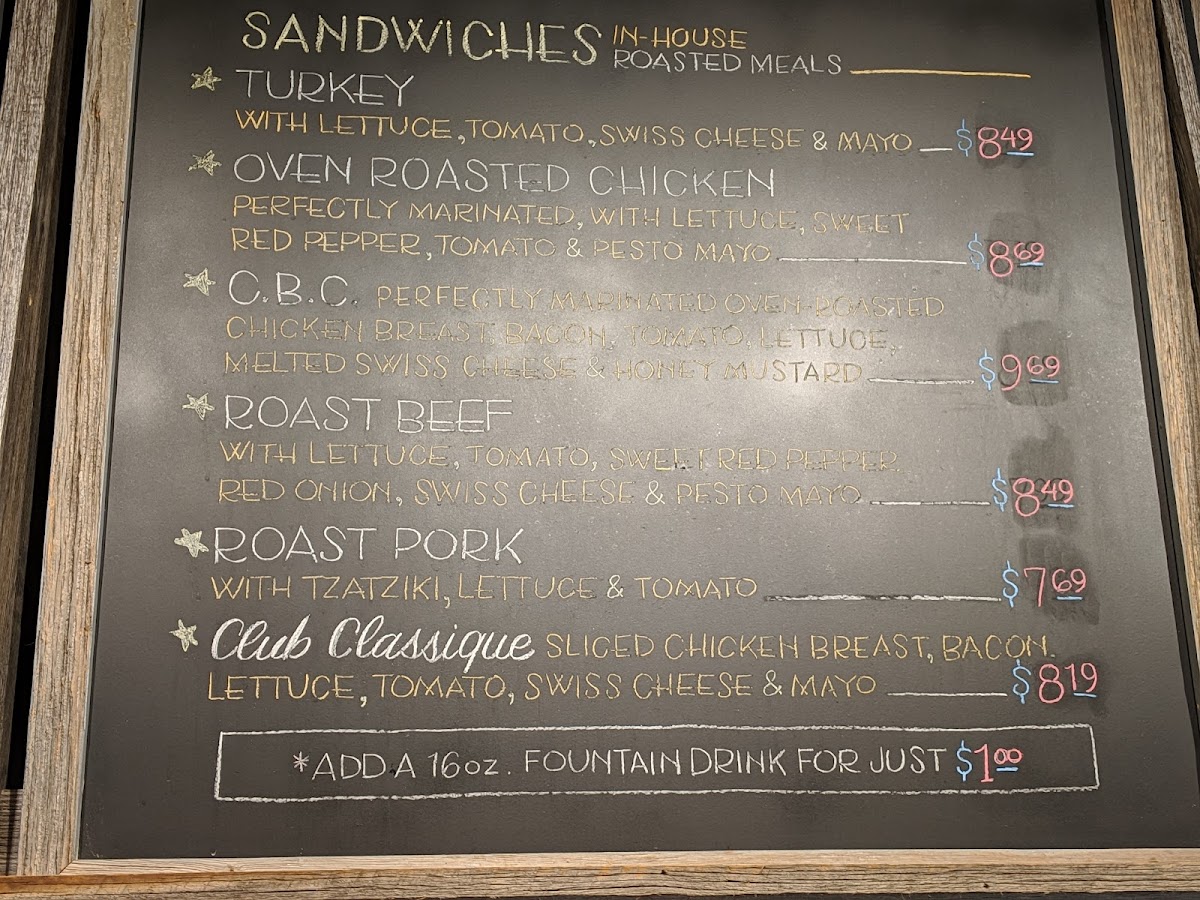 SANDWICHES IN-HOUSE
ROASTED MEALS
TURKEY
WITH LETTUCE, TOMATO, SWISS CHEESE & MAYO $8.49
OVEN ROASTED CHICKEN
PERFECTLY MARINATED, WITH LETTUCE, SWEET
RED PEPPER, TOMATO & PESTO MAYO $8.69
C.B.C. PERFECTLY MARINATED OVEN-ROASTED
CHICKEN BREAST, BACON, TOMATO, LETTUCE,
MELTED SWISS CHEESE & HONEY MUSTARD $9.69
ROAST BEEF
WITH LETTUCE, TOMATO, SWEET RED PEPPER
RED ONION, SWISS CHEESE & PESTO MAYO $8.49
ROAST PORK
WITH TZATZIKI, LETTUCE & TOMATO $7.69
Club Classique SLICED CHICKEN BREAST, BACON,
LETTUCE, TOMATO, SWISS CHEESE & MAYO $8.19
*ADD A 16oz. FOUNTAIN DRINK FOR JUST $1.00